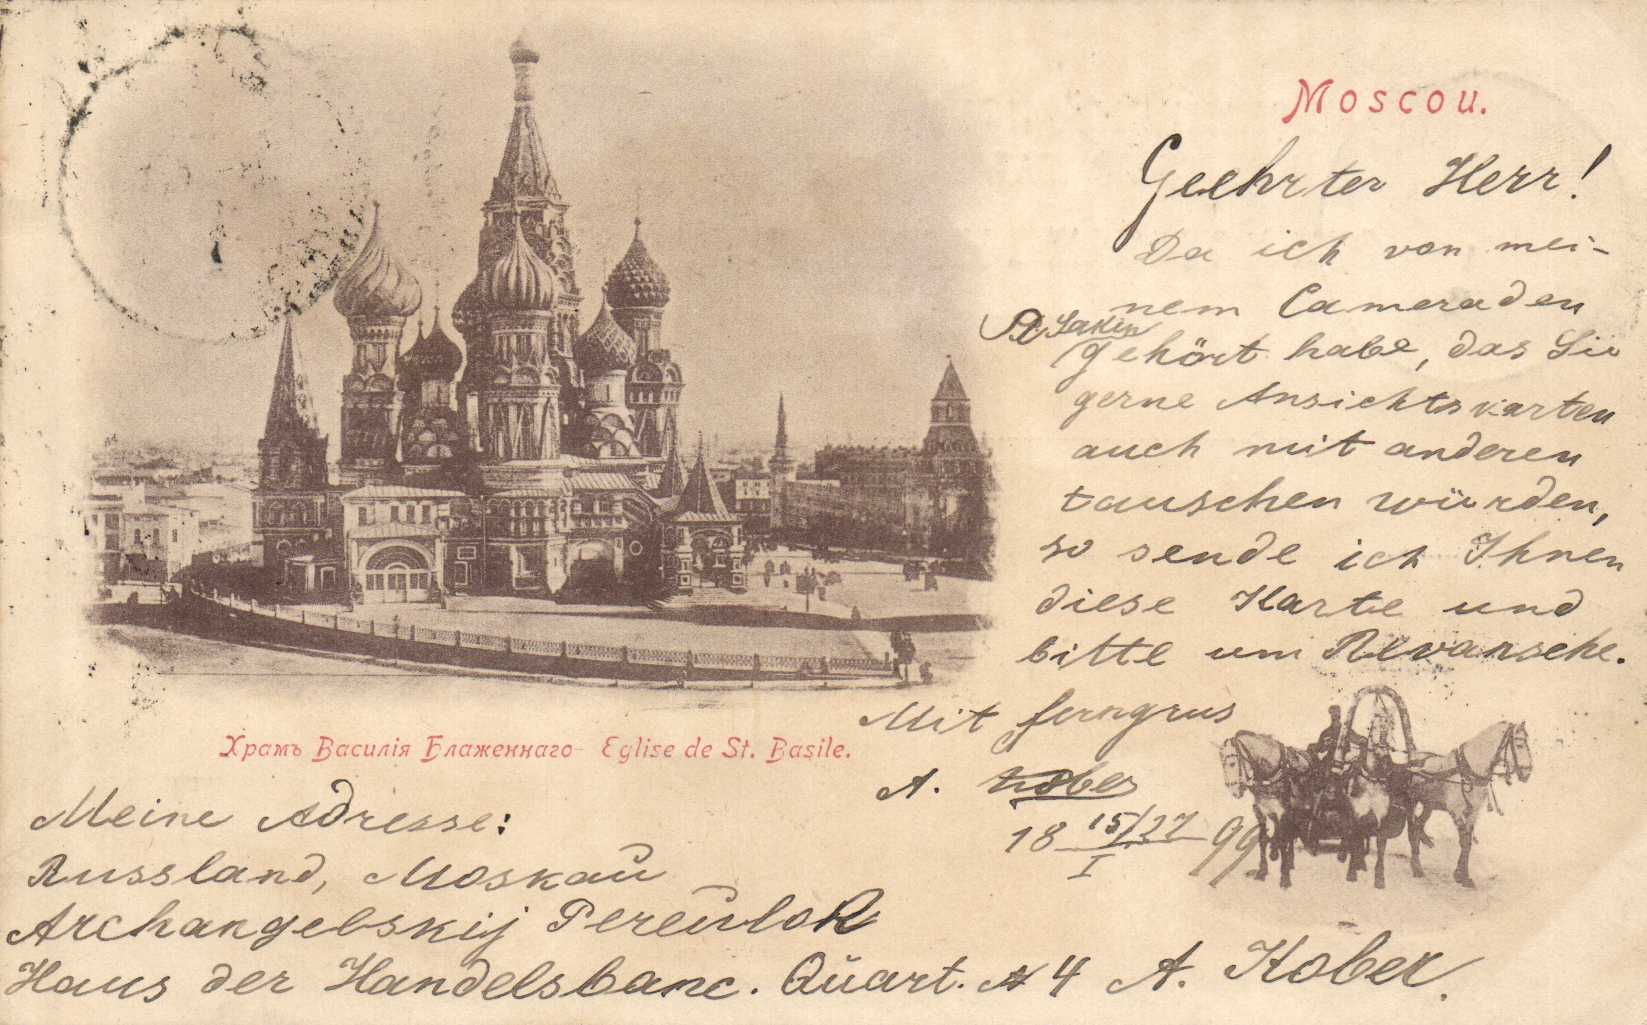 Moscou.
Geehrter Herr!
Da ich von mei-
nem Cameraden
A. Sakin
gehört habe, das Sie
gerne Ansichtskarten
auch mit anderen
tauschen würden,
so sende ich Ihnen
diese Karte und
bitte um Revansche.
Mit ferngrus
A. Kober
18 15/27 99
I
Храмъ Василія Блаженнаго - Eglise de St. Basile.
Meine Adresse:
Russland, Moskau
Archangelskij Pereulok
Haus der Handelsbanc. Quart. № 4 A. Kober.